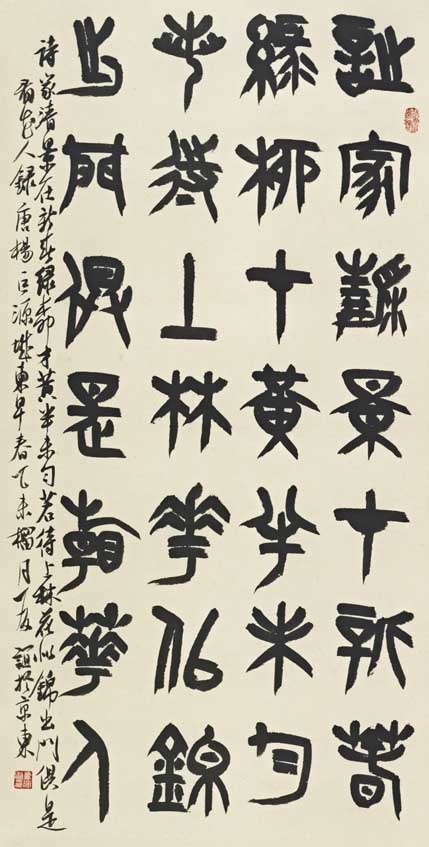 詩家清景在新春
綠柳才黃半未勻
若待上林華佀錦
出門俱是看華人
詩家清景在新春綠柳才黃半未勻若待上林花似錦出門俱是
看花人錄唐楊巨源城東早春乙未榴月丁友誼於京東